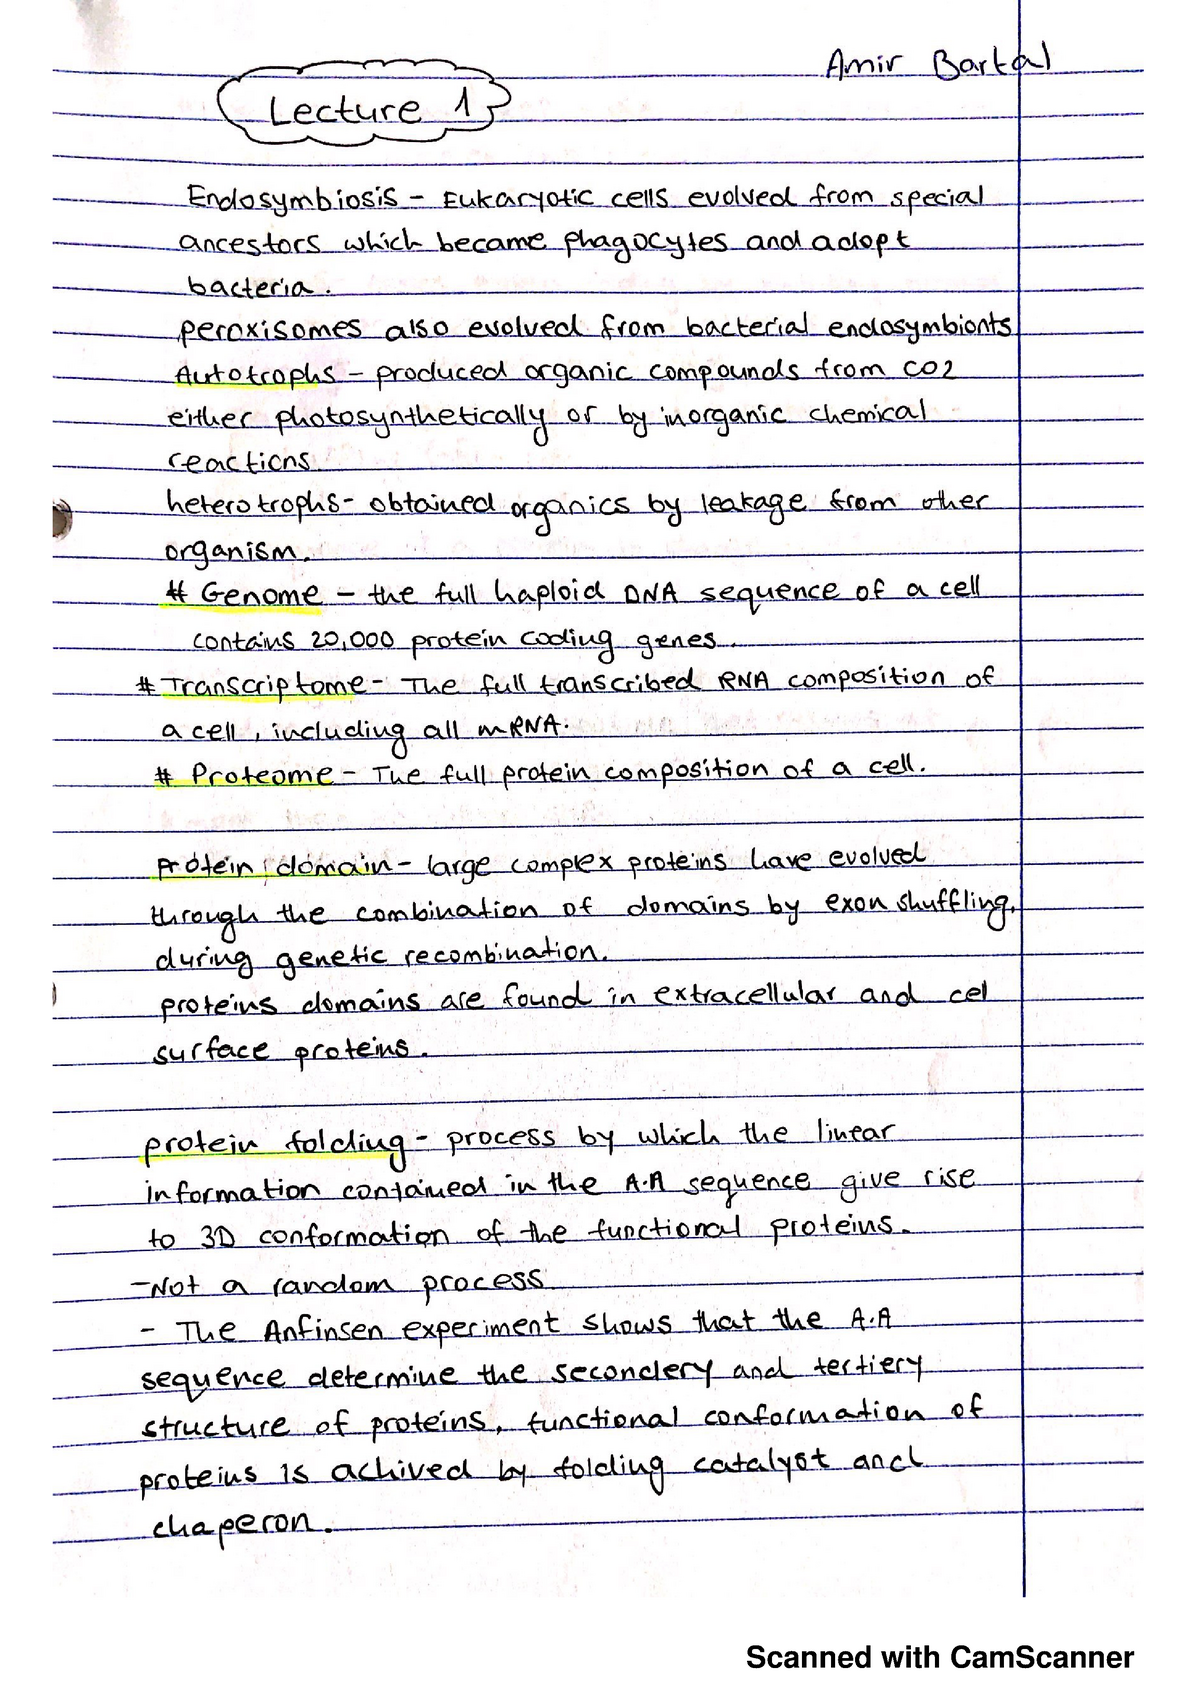 Amir Bartal
Lecture 1
Endosymbiosis - Eukaryotic cells evolved from special
ancestors which became phagocytes and adopt
bacteria.
peroxisomes also evolved from bacterial endosymbionts
Autotrophs - produced organic compounds from CO2
either photosynthetically or by inorganic chemical
reactions
heterotrophs- obtained organics by leakage from other
organism.
# Genome - the full haploid DNA sequence of a cell
contains 20,000 protein coding genes.
# Transcriptome - The full transcribed RNA composition of
a cell, including all mRNA.
# Proteome - The full protein composition of a cell.
Protein domain - large complex proteins have evolved
through the combination of domains by exon shuffling,
during genetic recombination.
proteins domains are found in extracellular and cel
surface proteins.
protein folding - process by which the linear
information contained in the A.A sequence give rise
to 3D conformation of the functional proteins.
-Not a random process
- The Anfinsen experiment shows that the A.A
sequence determine the secondery and tertiery
structure of proteins, functional conformation of
proteins is achived by folding catalyst and
chaperon.
Scanned with CamScanner